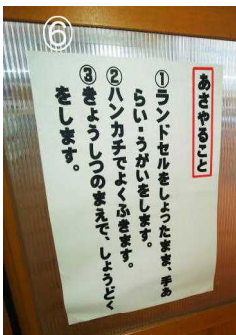 ⑥
あさやること
①ランドセルをしょったまま、手あ
らい・うがいをします。
②ハンカチでよくふきます。
③きょうしつのまえで、しょうどく
をします。